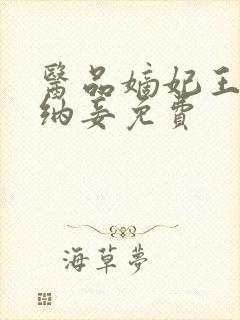 醫品嫡妃王
納妾免費
海草夢